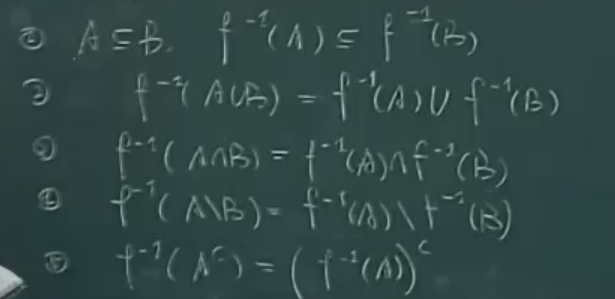 ① A ⊆ B. f⁻¹(A) ⊆ f⁻¹(B)
② f⁻¹(A∪B) = f⁻¹(A) ∪ f⁻¹(B)
③ f⁻¹(A∩B) = f⁻¹(A) ∩ f⁻¹(B)
④ f⁻¹(A\B) = f⁻¹(A) \ f⁻¹(B)
⑤ f⁻¹(Aᶜ) = (f⁻¹(A))ᶜ